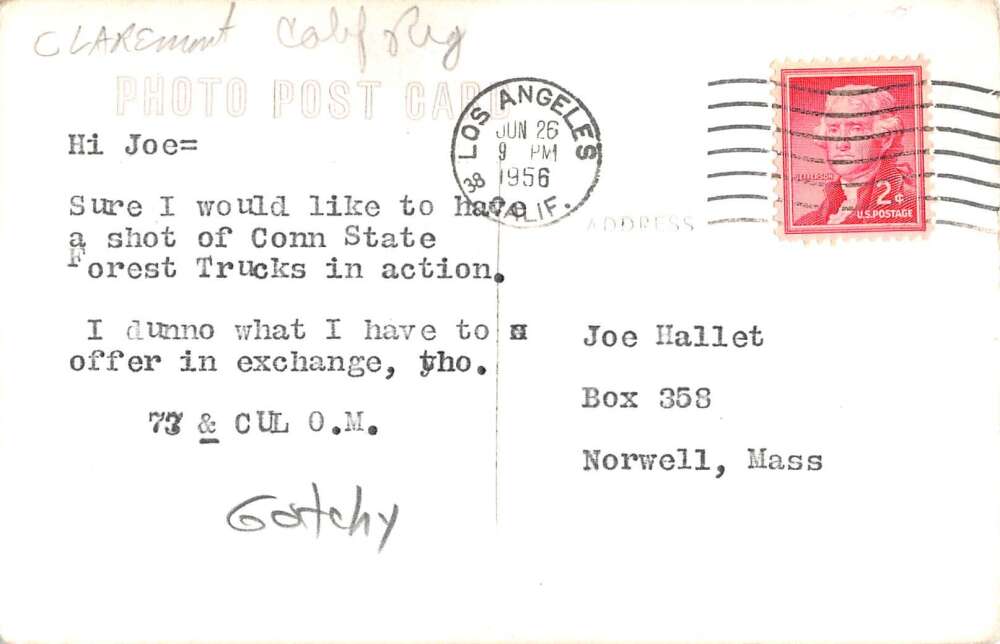 CLAREmont Calif Reg
PHOTO POST CARD
LOS ANGELES
JUN 26
9 PM
1956
38 CALIF.
JEFFERSON
2¢
U.S. POSTAGE
ADDRESS
Hi Joe=
Sure I would like to have
a shot of Conn State
Forest Trucks in action.
I dunno what I have to
offer in exchange, tho.
73 & CUL O.M.
Gatchy
Joe Hallet
Box 358
Norwell, Mass